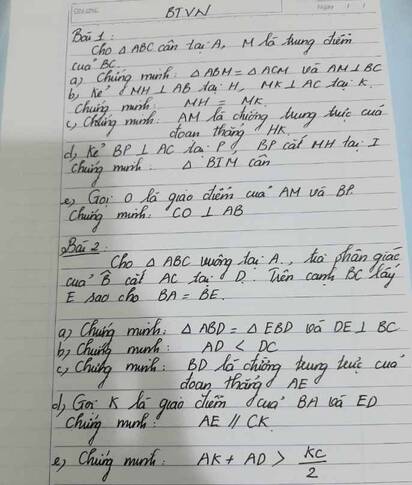 BTVN
Bài 1:
Cho △ ABC cân tại A, M là trung điểm
của BC.
a) Chứng minh: △ ABM = △ ACM và AM ⊥ BC
b, Kẻ MH ⊥ AB tại H, MK ⊥ AC tại K.
Chứng minh: MH = MK.
c, Chứng minh: AM là đường trung trực của
đoạn thẳng HK.
d, Kẻ BP ⊥ AC tại P BP cắt MH tại I
Chứng minh: △ BIM cân
e, Gọi O là giao điểm của AM và BP.
Chứng minh: CO ⊥ AB
Bài 2:
Cho △ ABC vuông tại A, tia phân giác
của B̂ cắt AC tại D. Trên cạnh BC lấy
E sao cho BA = BE.
a, Chứng minh: △ ABD = △ EBD và DE ⊥ BC
b, Chứng minh: AD < DC
c, Chứng minh: BD là đường trung trực của
đoạn thẳng AE
d, Gọi K là giao điểm của BA và ED
Chứng minh: AE // CK.
e, Chứng minh: AK + AD > KC/2